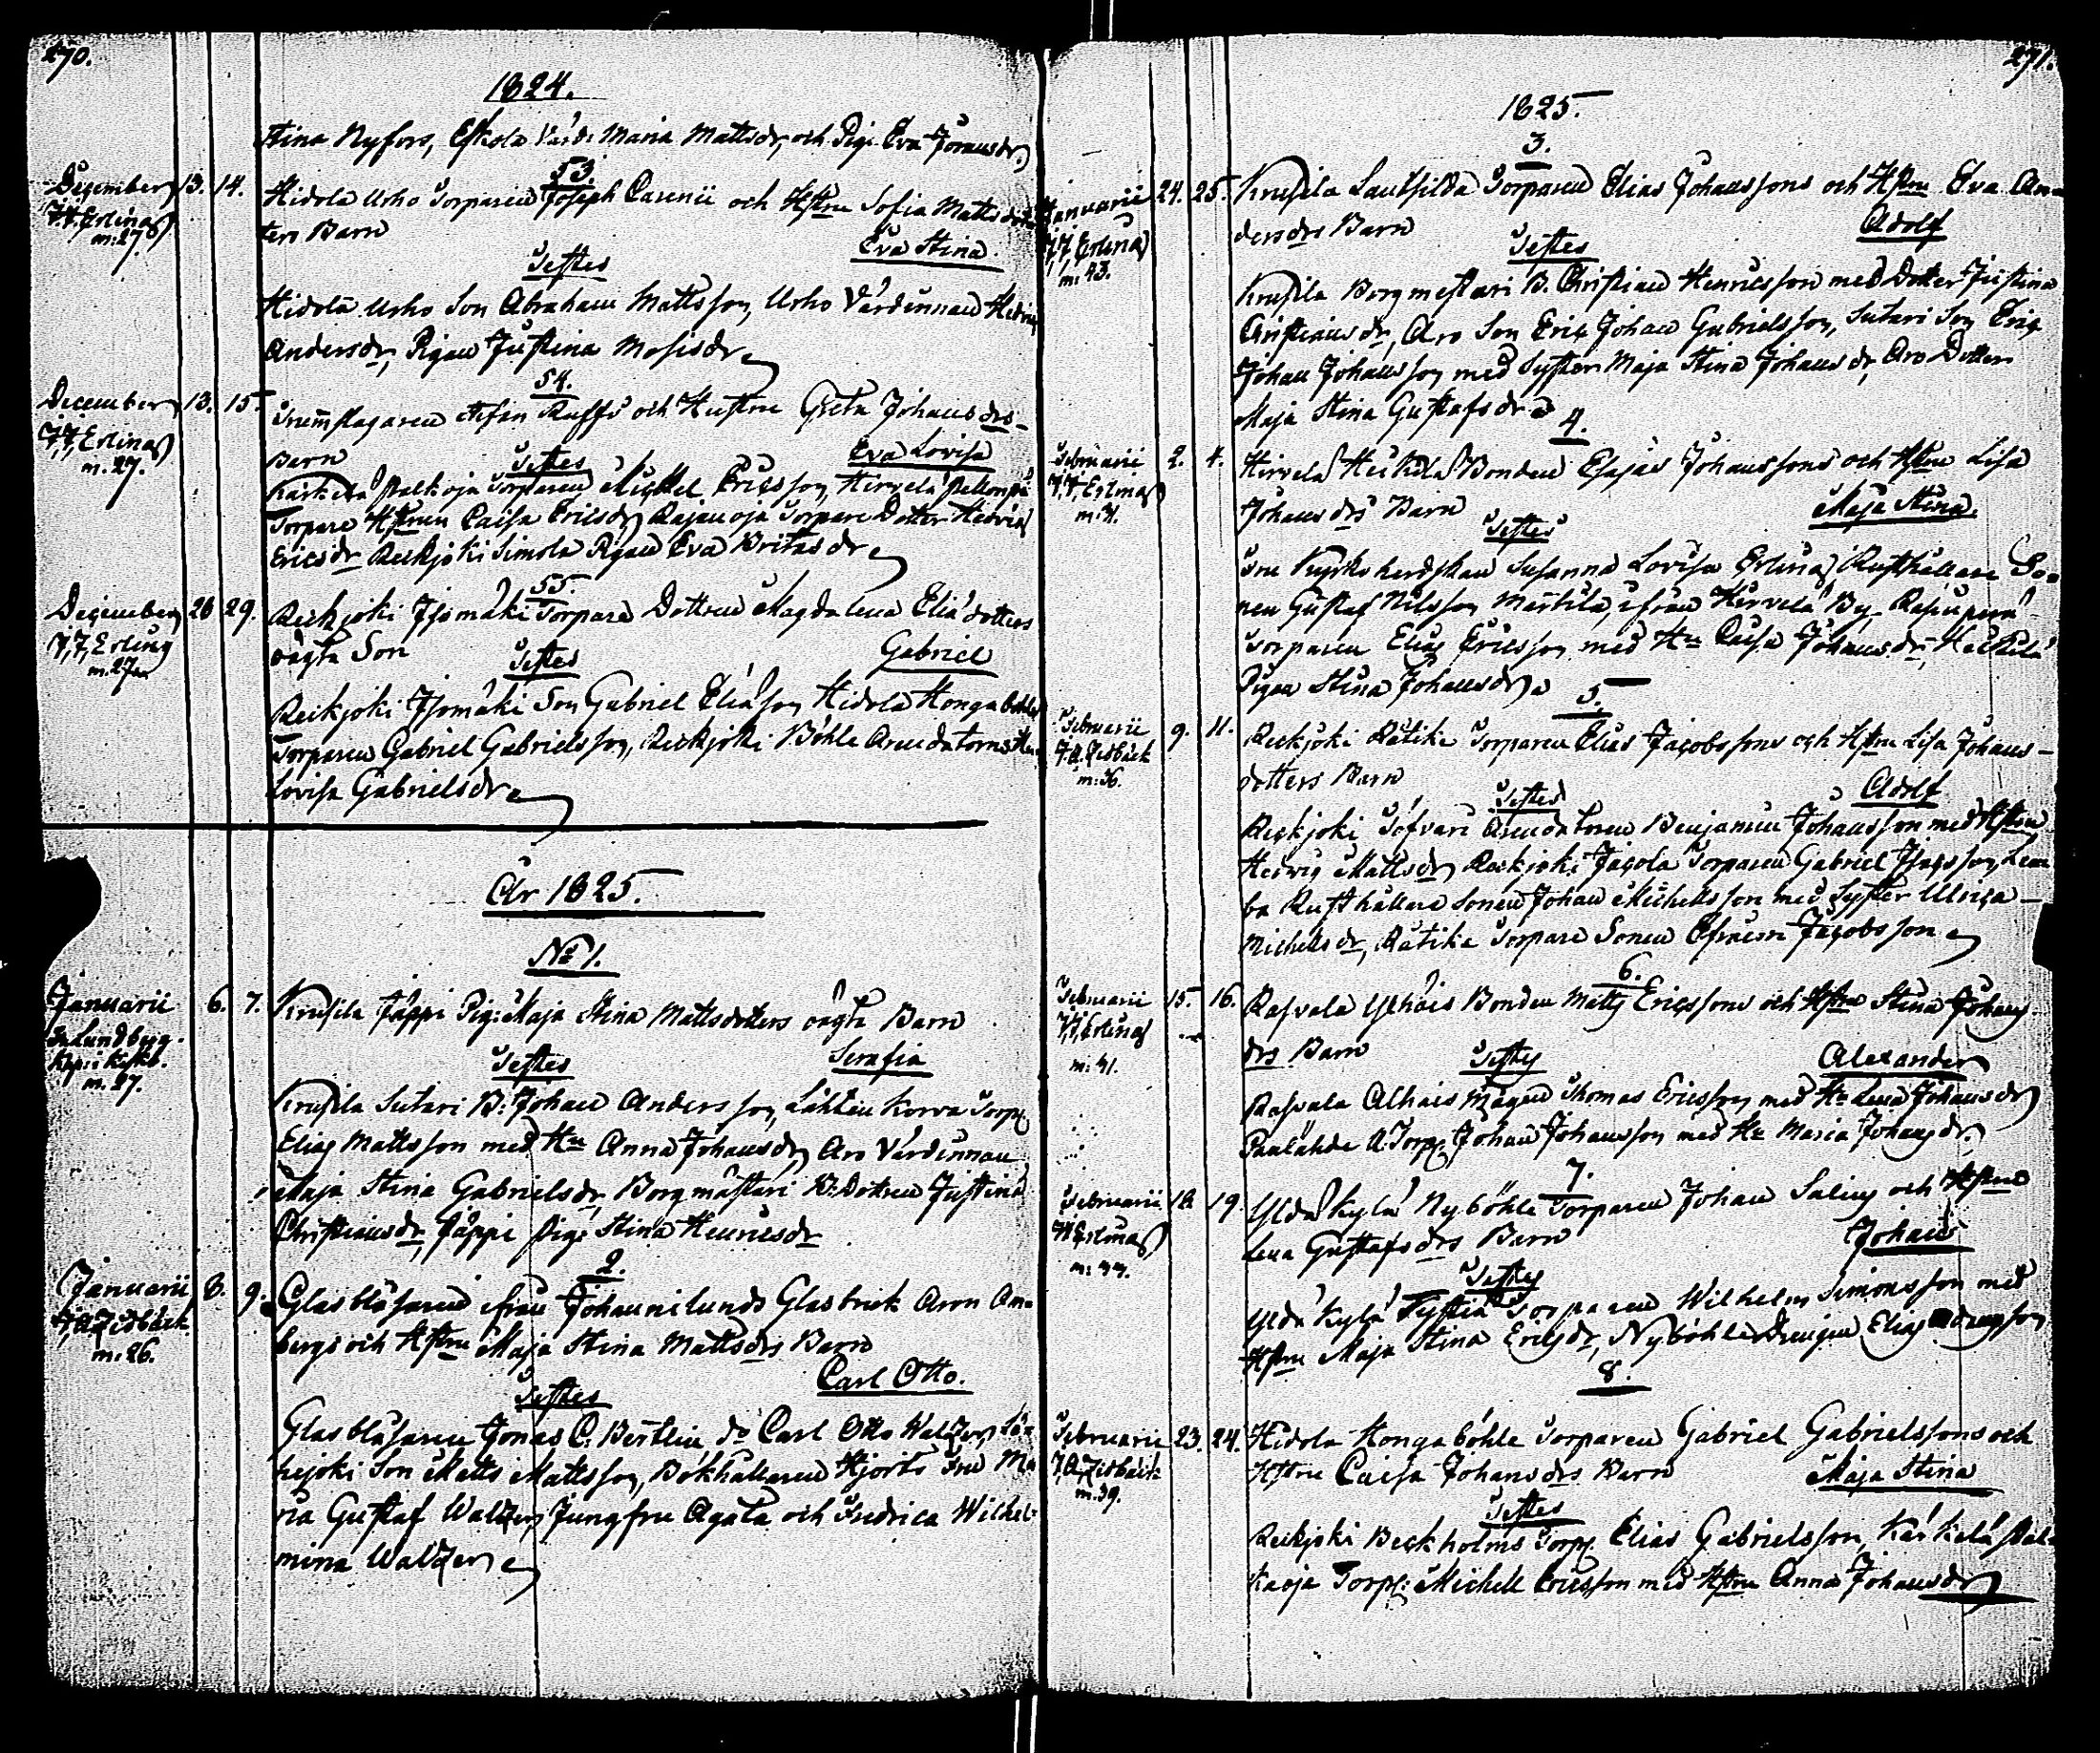 270.
1824.
Stina Nyfors, Eskola Värds Maria Mattsdr, och Pig. Eva Jöransdr
53.
December 13. 14. Hidola Usho Torparen Joseph Carenii och Hstru Sofia Mattsdot-
J.J. Erling
m: 27.
ters Barn
Eva Stina.
Testes
Hidola Usho Son Abraham Mattsson, Usho Värdinnan Hedvig
Andersdr, Pigan Justina Mosisdr
54.
December 13. 15. Trumslagaren Stefan Ruffs och Hustru Greta Johansdrs
J.J. Erling
m. 27.
Barn
Testes
Eva Lovisa
Kärkelä Palkoja Torparen Michel Ericsson, Hirvelä Pellonpä
Torpare Hstrun Caisa Ericsdr, Rajan oja Torpare Dotter Hedvig
Ericsdr Reckjoki Simola Pigan Eva Britasdr
55.
December 28 29. Reckjoki Isomäki Torpare Dottren Magdalena Eliædotters
J.J. Erling
m. 27
oägta Son
Testes
Gabriel
Reckjoki Isomäki Son Gabriel Eliæson, Hidola Hongaböhle
Torparen Gabriel Gabrielsson, Reckjoki Böhle Arendatorns
Lovisa Gabrielsdr
År 1825.
No 1.
Januarii 6. 7. Krusila Jäppi Pig: Maja Stina Mattsdotters oägta Barn
Lundberg
m. 27.
Testes
Serafia
Krusila Sutari B: Johan Andersson, Lähteen Korva Torp:
Elias Mattsson med Hu Anna Johansdr, Aro Värdinnan
Maja Stina Gabrielsdr, Borgmästari B: Dottren Justina
Christiansdr, Jäppi Pig: Stina Henricsdr
2.
Januarii 8. 9. Glasblåsaren ifrån Johannislunds Glasbruk Aron Am-
J.A. Zidbäck
m. 26.
bergs och Hstru Maja Stina Mattsdrs Barn
Carl Otto.
Testes
Glasblåsaren Jonas C. Bertlin do Carl Otto Walzer,
hejoki Son Matts Mattsson, Bokhållaren Hjorts Fru Ma
ria Gustaf Walzer, Jungfru Agata och Fredrica Wilhel-
mina Walzer
271.
1825.
3.
Januarii 24. 25. Krusila Lautsilda Torparen Elias Johanssons och Hstru Eva An-
J.J. Erling
m: 43.
dersdrs Barn
Adolf
Testes
Krusila Borgmestari B. Christian Henricsson med Dotter Justina
Christiansdr, Aro Son Eric Johan Gabrielsson, Sutari Son Eric
Johan Johansson med Syster Maja Stina Johansdr, Aro Dotter
Maja Stina Gustafsdr
4.
Februarii 2. 4. Hirvelä Heikilä Bonden Esajas Johanssons och Hstru Lisa
J.J. Erling
m: 31.
Johansdrs Barn
Maja Stina.
Testes
Fru Kyrkoherdskan Susanna Lovisa Erling, Rusthållare So-
nen Gustaf Nilsson Märtilä, ifrån Hirvelä By,
Torparen Elias Ericsson med Hu Caisa Johansdr, Heikilä
Pigan Stina Johansdr
5.
Februarii 9. 11. Reckjoki Rätike Torparen Elias Jacobssons och Hstru Lisa Johans-
J.A. Zidbäck
m: 36.
dotters Barn
Testes
Adolf
Reckjoki Sofvari Arendatoren Benjamin Johansson med Hstru
Hedvig Mattsdr, Reckjoki Jacola Torparen Gabriel Isacsson,
ba Rusthållare Sonen Johan Michelsson med Syster Ulrica
Michelsdr, Rätike Torpare Sonen Efraim Jacobsson
6.
Februarii 15. 16. Rasvala Ylhäis Bonden Matts Ericssons och Hstru Stina Johans
J.J. Erling
m: 41.
drs Barn
Testes
Alexander
Rasvala Alhais Mågen Thomas Ericsson med Hu Lena Johansdr
A: Torp: Johan Johansson med Hu Maria Johansdr
7.
Februarii 18 19. Yldä Kylä Nyböhle Torparen Johan Salins och Hstru
J.J. Erling
m: 44.
Lena Gustafsdrs Barn
Johan
Testes
Yldä Kylä Torparen Wilhelm Simonsson med
Hstru Maja Stina Ericsdr, Nyböhle Drengen Elias
8.
Februarii 23. 24. Hidola Hongaböhle Torparen Gabriel Gabrielssons och
J.A. Zidbäck
m. 39.
Hstru Caisa Johansdrs Barn
Maja Stina
Testes
Reckjoki Beckholms Torp: Elias Gabrielsson, Kärkelä Pal-
kaoja Torp: Michel Ericsson med Hstru Anna Johansdr